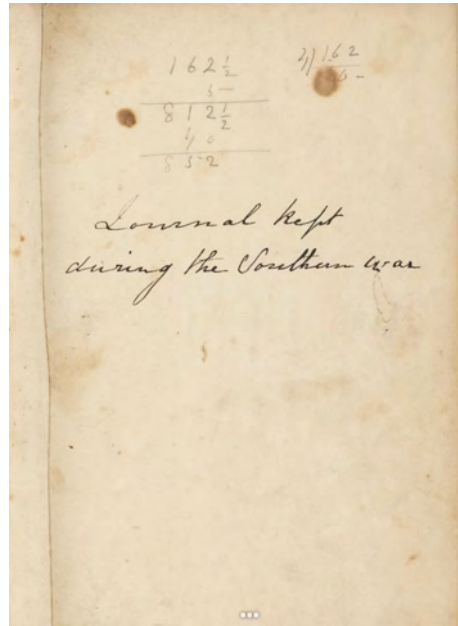 162½
5
812½
40
852
Journal kept
during the Southern war